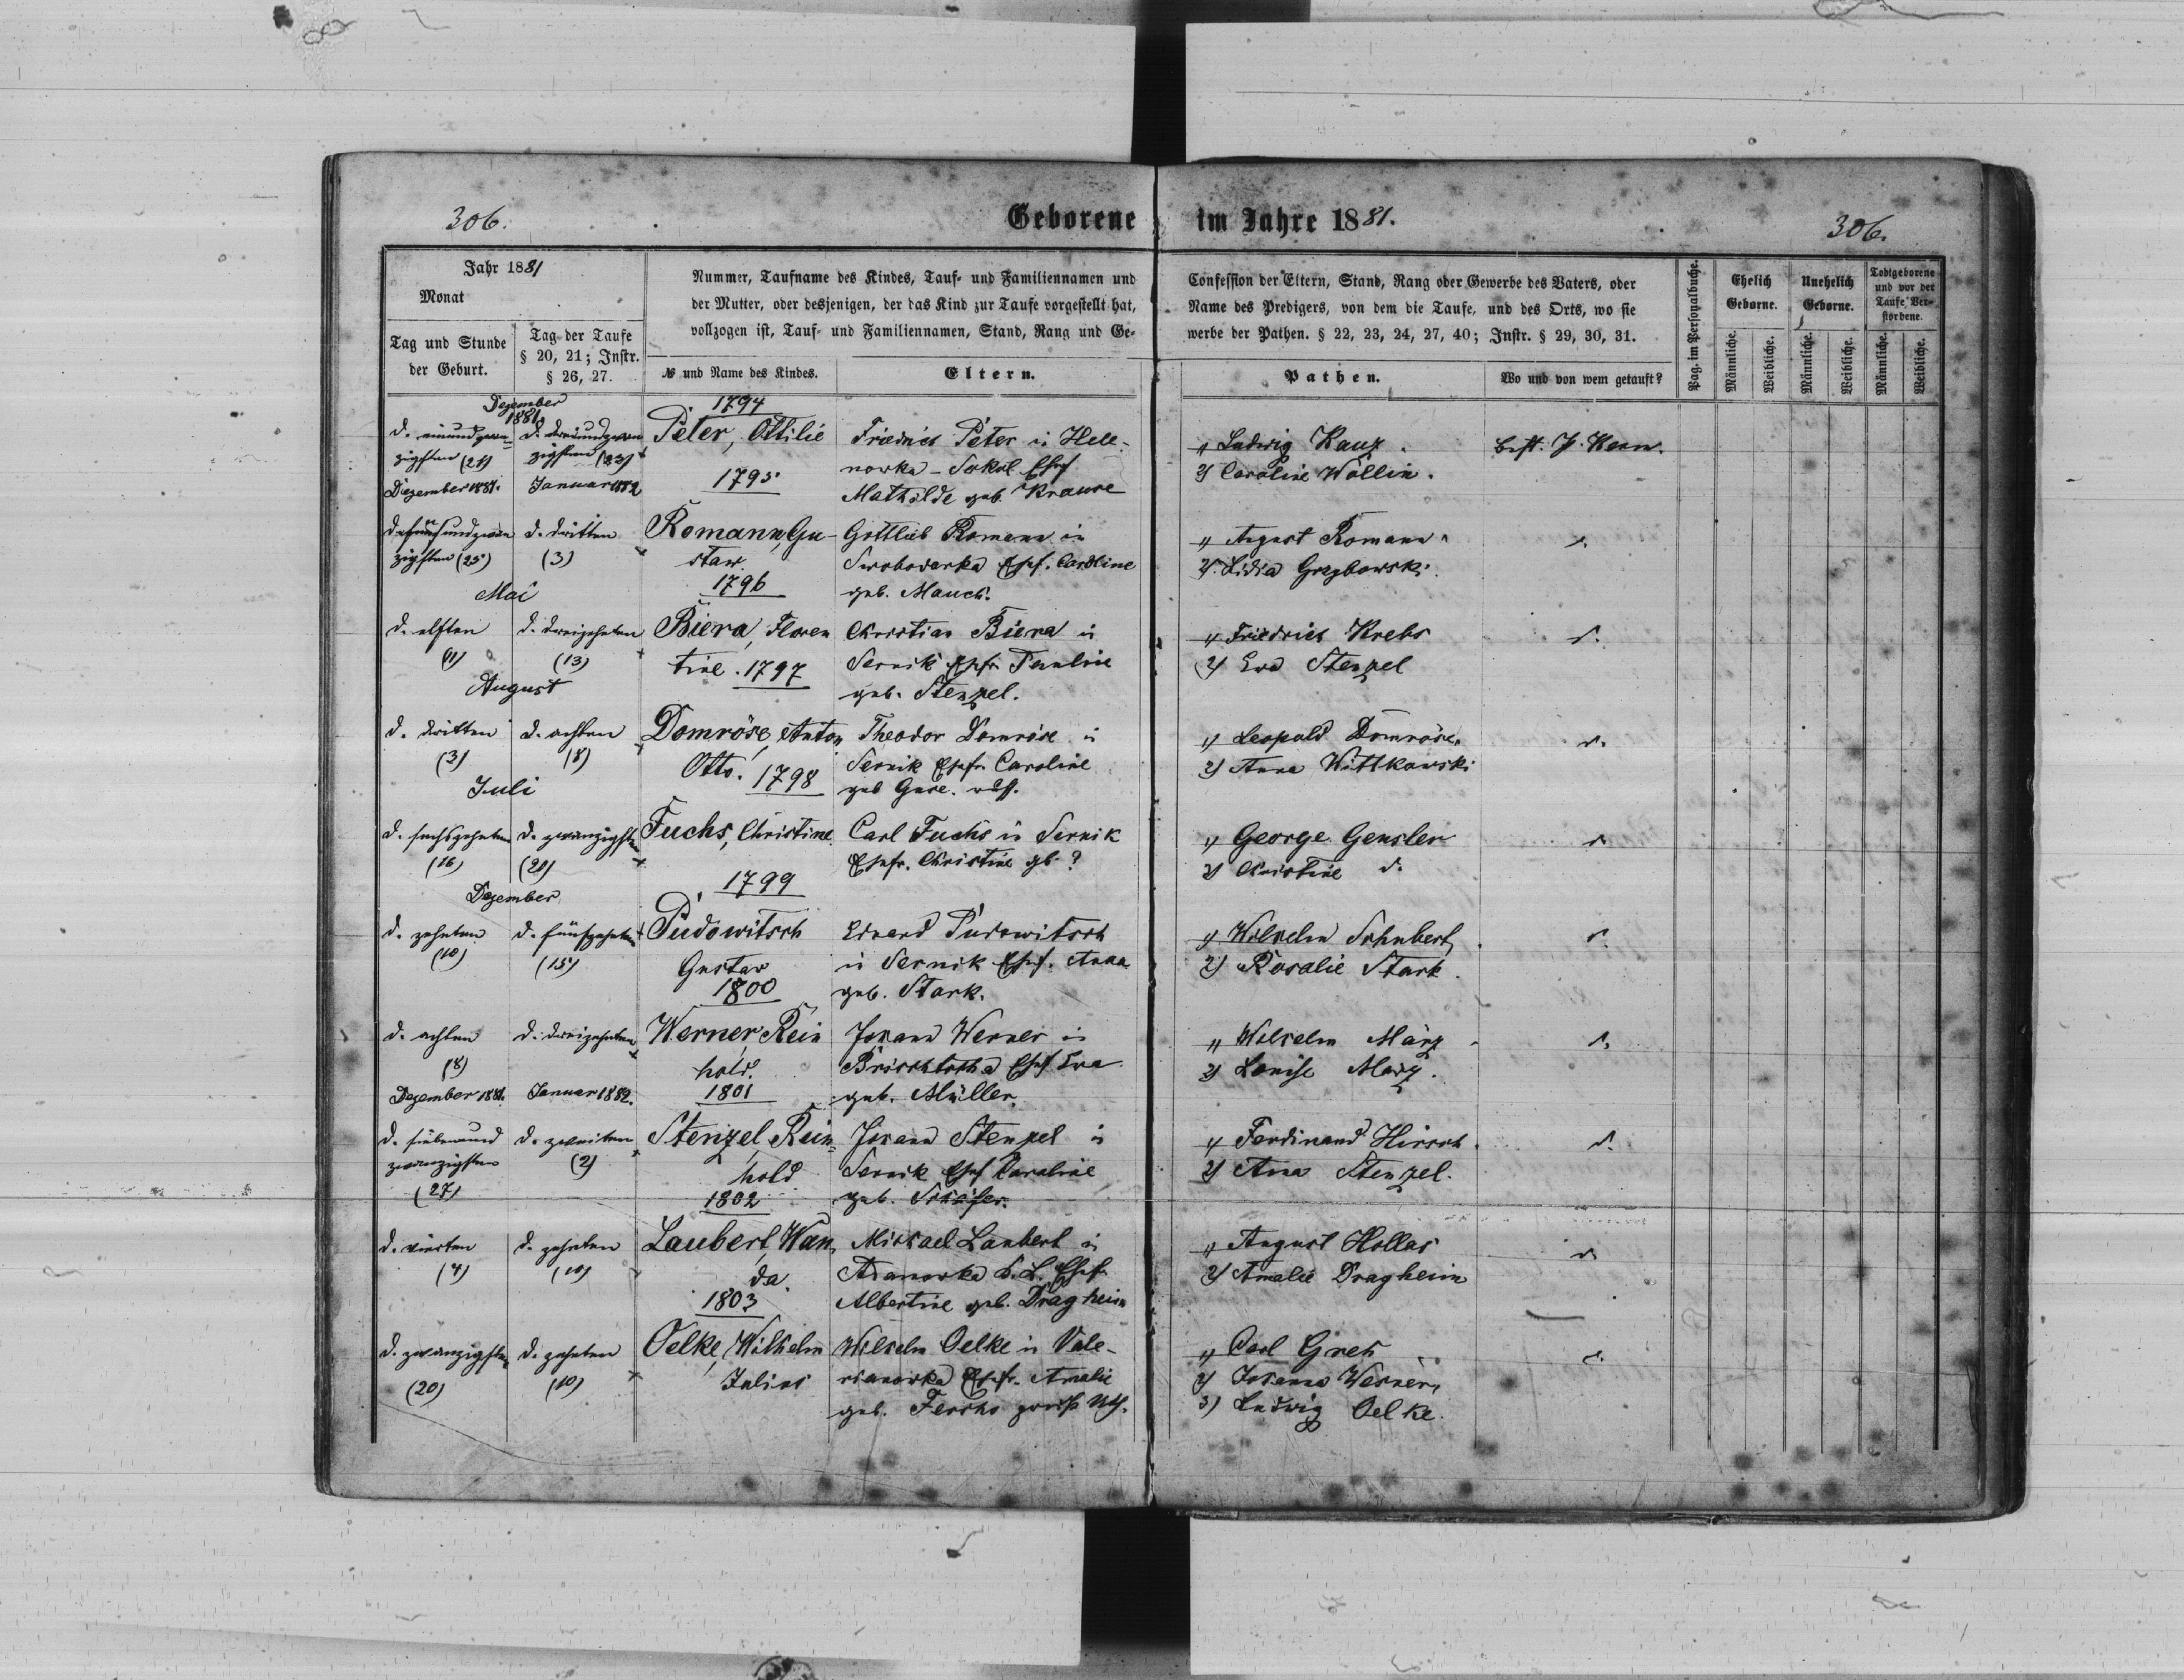 306.
Geborene im Jahre 1881.
306.
Jahr 1881
Monat
Tag und Stunde
der Geburt.
Tag der Taufe
§ 20, 21; Instr.
§ 26, 27.
Nummer, Taufname des Kindes, Tauf- und Familiennamen und
der Mutter, oder desjenigen, der das Kind zur Taufe vorgestellt hat,
vollzogen ist, Tauf- und Familiennamen, Stand, Rang und Ge-
№ und Name des Kindes.
Eltern.
Confession der Eltern, Stand, Rang oder Gewerbe des Vaters, oder
Name des Predigers, von dem die Taufe, und des Orts, wo sie
werbe der Pathen. § 22, 23, 24, 27, 40; Instr. § 29, 30, 31.
Pathen.
Wo und von wem getauft?
Pag. im Personalbuche.
Ehelich
Geborne.
Unehelich
Geborne.
Todtgeborene
und vor der
Taufe Ver-
storbene.
Männliche.
Weibliche.
Männliche.
Weibliche.
Männliche.
Weibliche.
Dezember
1881
d. einundzwan-
zigsten (21)
d. dreiundzwan
zigsten (23)
1794
Peter, Ottilie
Friedrich Peter in Hele-
nowka-Sokol Ehef
Mathilde geb. Krause
1) Ludwig Kauz.
2) Caroline Wollin.
J. Kern.
Dezember 1881.
Januar 1882
1795
d. fünfundzwan
zigsten (25)
d. dritten
(3)
Romann, Gu-
stav.
Gottlieb Romann in
Swobodarka Ehef. Caroline
geb. Mauch.
1) August Romann
2) Lidia Grzybowski.
d.
Mai
1796
d. elften
(11)
d. dreizehnten
(13)
Biera, Floren
tine.
Christian Biera in
Sernik Ehefr. Pauline
geb. Stenzel.
1) Friedrich Krebs
2) Eva Stenzel
d.
August
1797
d. dritten
(3)
d. achten
(8)
Domröse, Anton
Otto.
Theodor Domröse in
Sernik Ehefr. Caroline
geb
1) Leopold Domröse.
2) Anna Wittkowski
d.
Juli
1798
d. sechszehnten
(16)
d. zwanzigsten
(20)
Fuchs, Christine
Carl Fuchs in Sernik
Ehefr. Christine gb. ?
1) George Gensler
2) Christine d.
d.
Dezember
1799
d. zehnten
(10)
d. fünfzehnten
(15)
Pudowitsch
Gustav
Eduard Pudowitsch
in Sernik Ehef. Anna
geb. Stark.
1) Wilhelm Schubert,
2) Rosalie Stark.
d.
1800
d. achten
(8)
d. dreizehnten
Werner, Rein
hold.
Johann Werner in
Ehef. Eva
geb. Müller.
1) Wilhelm März
2) Louise März.
d.
Dezember 1881.
Januar 1882.
1801
d. siebenund
zwanzigsten
(27)
d. zweiten
(2)
Stenzel, Rein-
hold
Johann Stenzel in
Sernik Ehef Caroline
geb. Schäfer.
1) Ferdinand Hirsch.
2) Anna Stenzel.
d.
1802
d. vierten
(4)
d. zehnten
(10)
Laubert, Wan
da.
Michael Laubert in
Adamowka Ehef.
Albertine geb. Dragheim
1) August Hollas
2) Amalie Dragheim
d.
1803
d. zwanzigsten
(20)
d. zehnten
(10)
Oelke, Wilhelm
Julius
Wilhelm Oelke in Vale-
rianowka Ehefr. Amalie
geb.
1) Carl
2) Johann Werner,
3) Ludwig Oelke.
d.